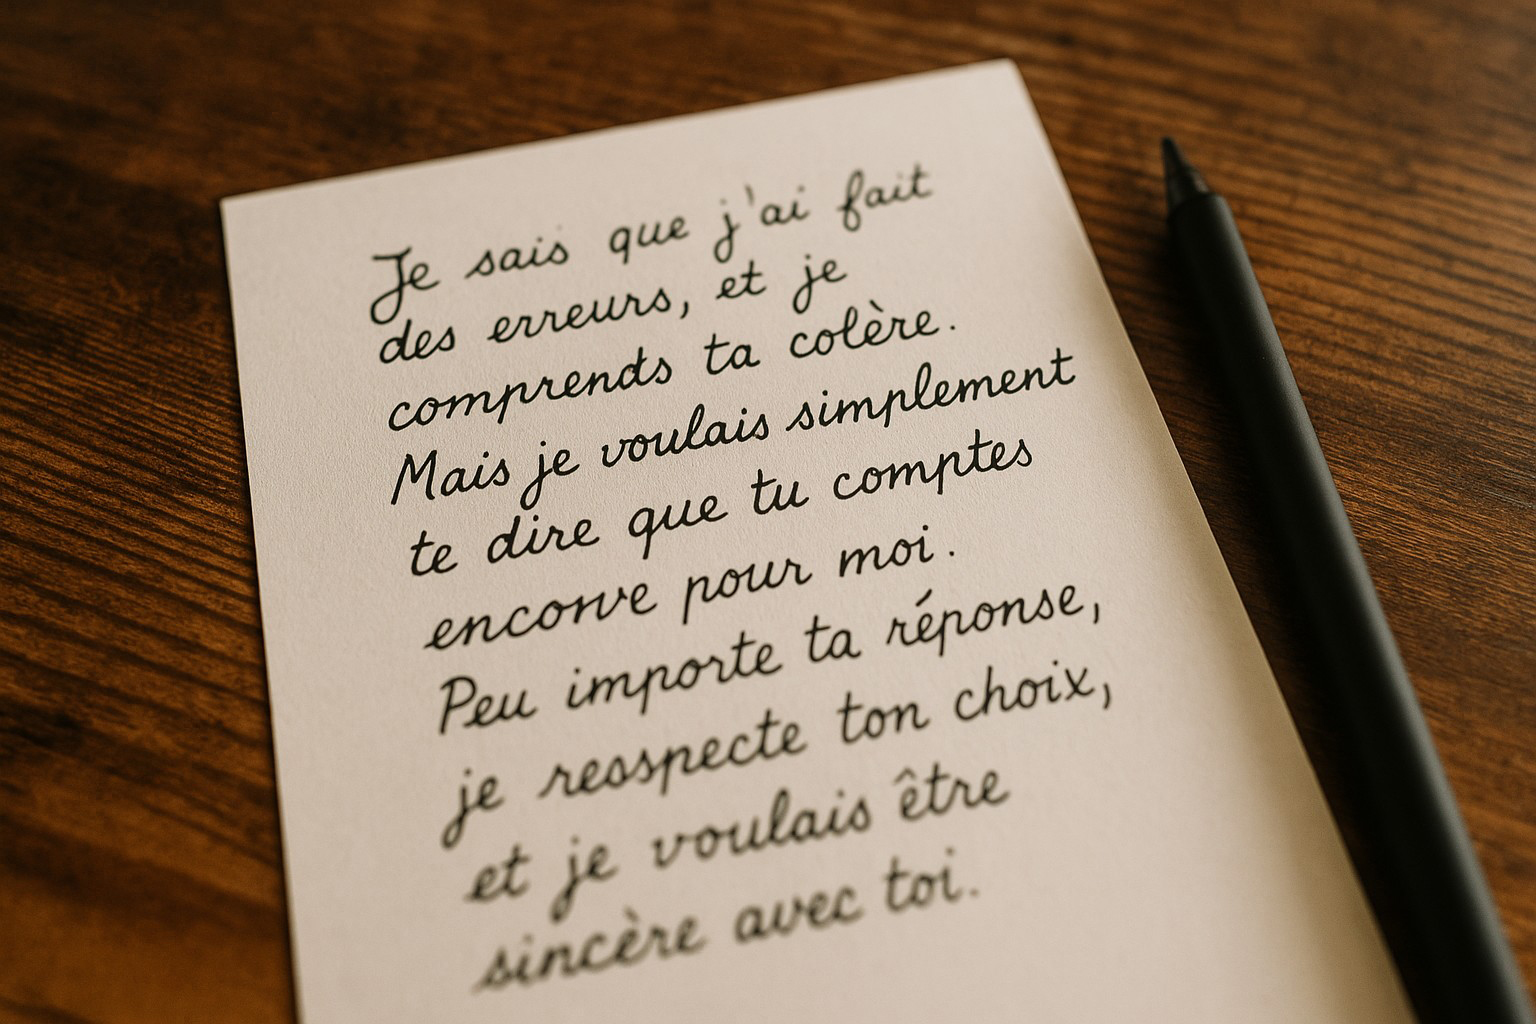 Je sais que j'ai fait
des erreurs, et je
comprends ta colère.
Mais je voulais simplement
te dire que tu comptes
encorve pour moi.
Peu importe ta réponse,
je resspecte ton choix,
et je voulais être
sincère avec toi.